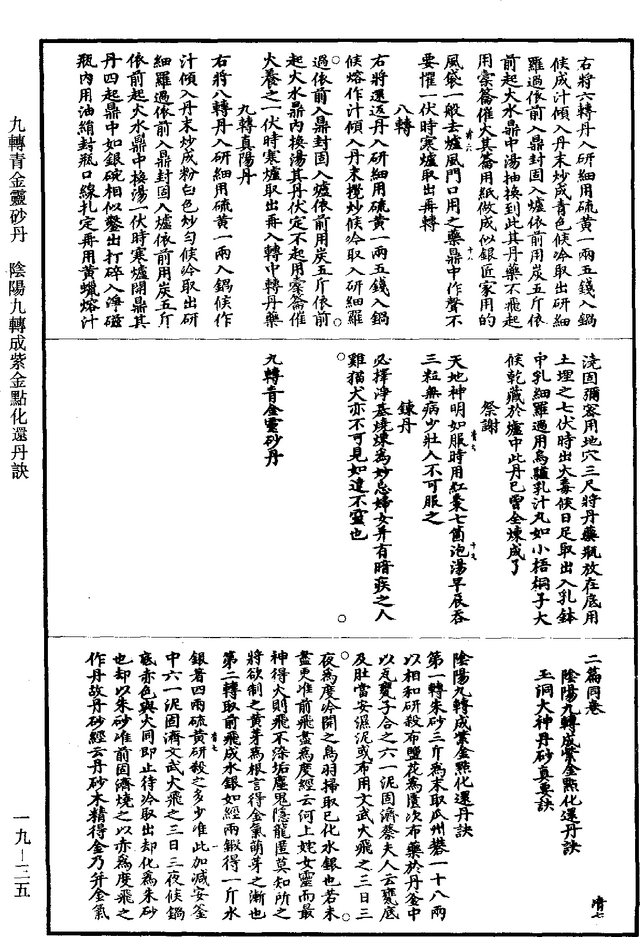 右將六轉丹入研細用硫黃一兩五錢入鍋
候成汁傾入丹末炒成青色候冷取出研細
羅過依前入鼎封固入爐依前用炭五斤依
前起火水鼎中湯抽換到此其丹藥不飛起
用橐籥催火其籥用紙做成似銀匠家用的
風袋一般去爐風門口用之藥鼎中作聲不
要懼一伏時寒爐取出再轉
八轉
右將還返丹入研細用硫黃一兩五錢入鍋
候熔作汁傾入丹末攪炒候冷取入研細羅
過依前入鼎封固入爐依前用炭五斤依前
起火水鼎內換湯其丹伏定不起用橐籥催
火養之一伏時寒爐取出再入轉中轉丹藥
九轉真陽丹
右將八轉丹入研細用硫黃一兩入鍋候作
汁傾入丹末炒成粉白色炒勻候冷取出研
細羅過依前入鼎封固入爐依前用炭五斤
依前起火水鼎中換湯一伏時寒爐開鼎其
丹四起鼎中如銀碗相似鑿出打碎入淨磁
瓶內用油絹封瓶口線扎定再用黃蠟熔汁
澆固彌密用地穴三尺將丹藥瓶放在底用
土埋之七伏時出火毒候日足取出入乳鉢
中乳細羅過用烏驢乳汁丸如小梧桐子大
候乾藏於爐中此丹已曾全煉成了
祭謝
天地神明如服時用紅棗七箇泡湯早辰吞
三粒無病少壯人不可服之
鍊丹
必擇淨基燒煉為妙忌婦女并有暗疾之人
雞猫犬亦不可見如違不靈也
九轉青金靈砂丹
二篇同卷
陰陽九轉成紫金點化還丹訣
玉洞大神丹砂真要訣
清七
陰陽九轉成紫金點化還丹訣
第一轉朱砂三斤為末取瓜州礬一十八兩
以相和研殺布鹽花為藉次布藥於丹釜中
以瓦甕子合之六一泥固濟蔡夫人云甕底
及肚當安濕泥或布用文武火飛之三日三
夜為度冷開之鳥羽掃取已化水銀也若未
盡更准前飛盡為度經云河上姹女靈而最
神得火則飛不染垢塵鬼隱龍匿莫知所之
將欲制之黃芽為根言得金氣萌芽之漸也
第二轉取前飛成水銀如經兩鍛得一斤水
銀著四兩硫黃研殺之多少准此加減安釜
中六一泥固濟文武火飛之三日三夜候鍋
底赤色與火同即止待冷取出却化為朱砂
也却以朱砂准前固濟燒之以赤為度飛之
作丹故丹砂經云丹砂木精得金乃并金氣
九轉青金靈砂丹　陰陽九轉成紫金點化還丹訣
一九—二五